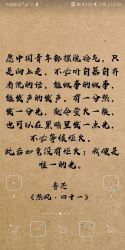 愿中国青年都摆脱冷气，只
是向上走，不必听自暴自弃
者流的话。能做事的做事，
能发声的发声。有一分热，
发一分光，就令萤火一般，
也可以在黑暗里发一点光，
不必等候炬火。
此后如竟没有炬火，我便是
唯一的光。
鲁迅
《热风·四十一》